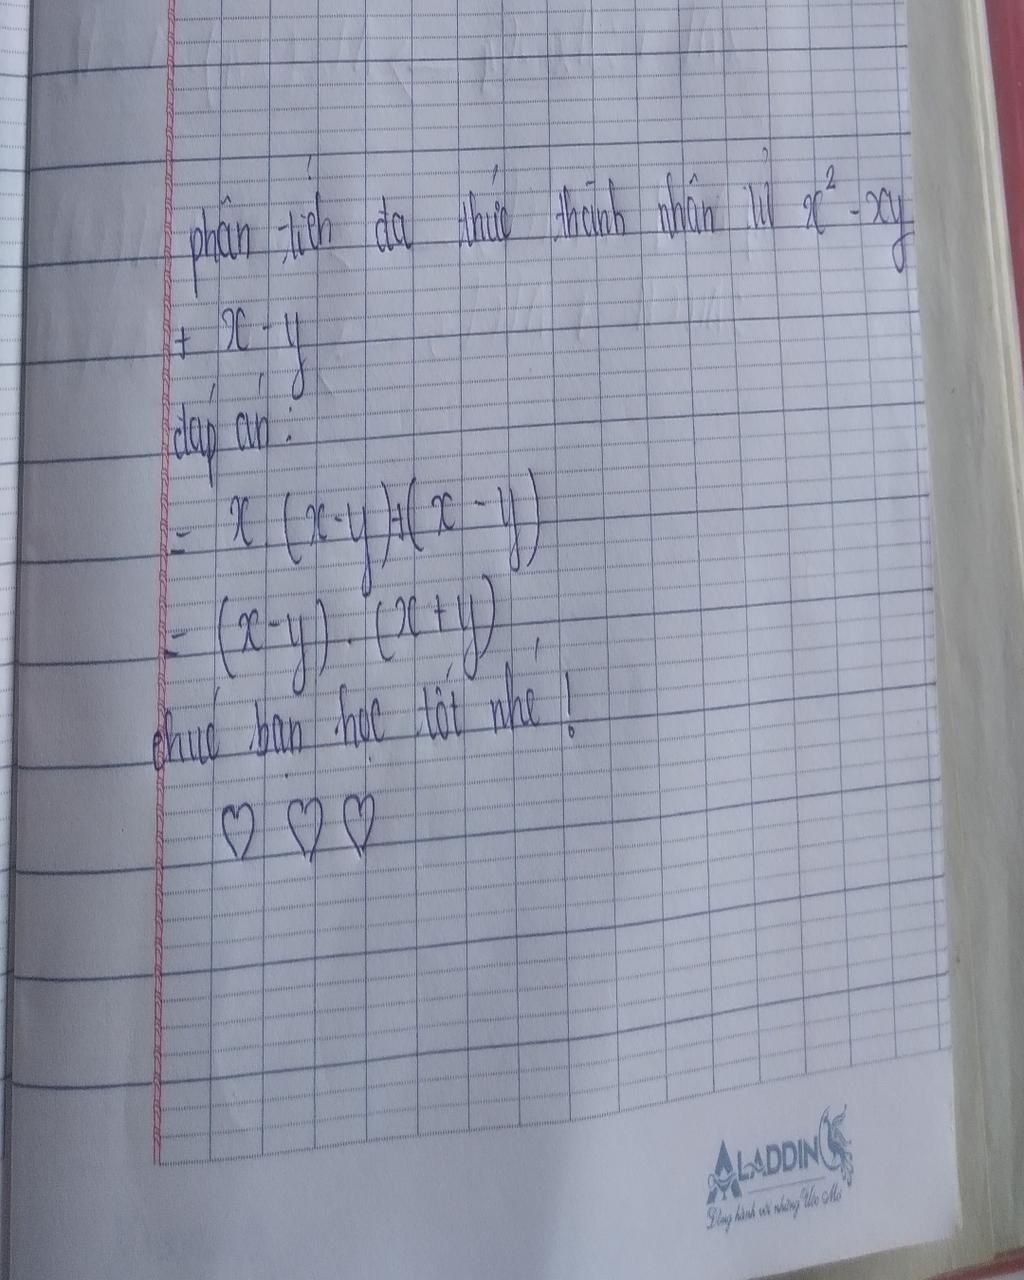 phân tích đa thức thành nhân tử x² - xy
+ x - y
đáp án:
= x (x-y)+(x - y)
= (x-y) . (x+y)
chúc bạn học tốt nhé !
♡ ♡ ♡
ALADDIN
Đồng hành với những Ước Mơ